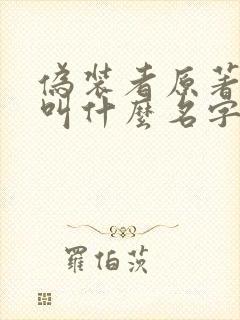 偽裝者原著
叫什麼名字
羅伯茨